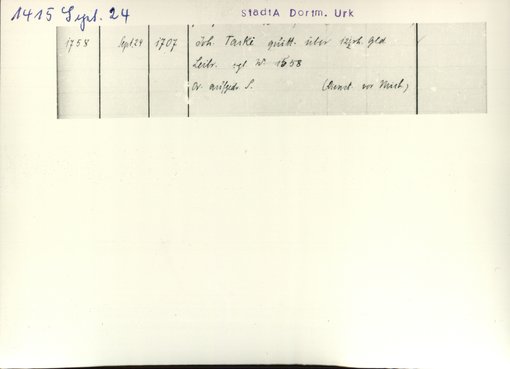 1415 Sept. 24
StadtA Dortm. Urk
1758 Sept 24 1707 Joh. Taske quitt. über 12 rh. Gld
Leibr. vgl N. 1658
Or. aufgedr. S. (Dienst. vor Mich.)